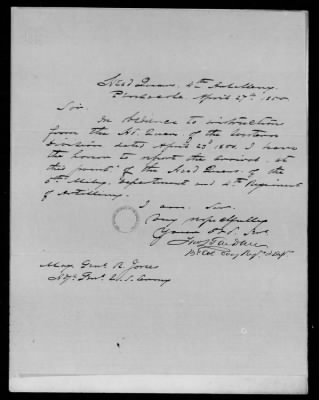 Head Quars, 4th Artillery,
Pensacola, April 27th, 1850.
Sir.
In obedience to instructions
from the Hd. Quars. of the Western
Division dated April 23d 1850, I have
the honor to report the arrival at
this point, of the Head Quars. of the
Mil'y. Department and 4th Regiment
of Artillery.
I am Sir.
Very respectfully
Your Obt. Svt.
Bt. Col.
Maj. Genl. R. Jones
Adjt. Genl. U.S. Army